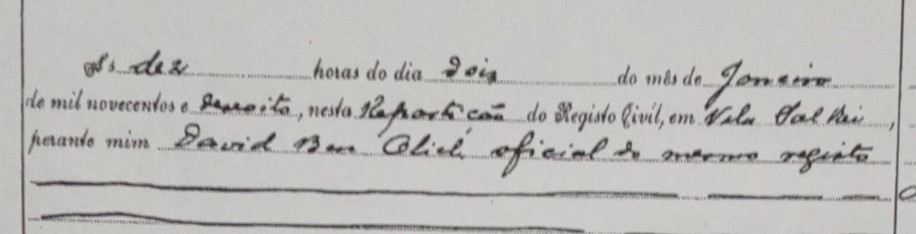 Ás dez horas do dia dois do mês de Janeiro
de mil novecentos e dezoito, nesta Repartição do Registo Civil, em Vila Sal Rei,
perante mim David Ben Oliel, oficial do mesmo registo